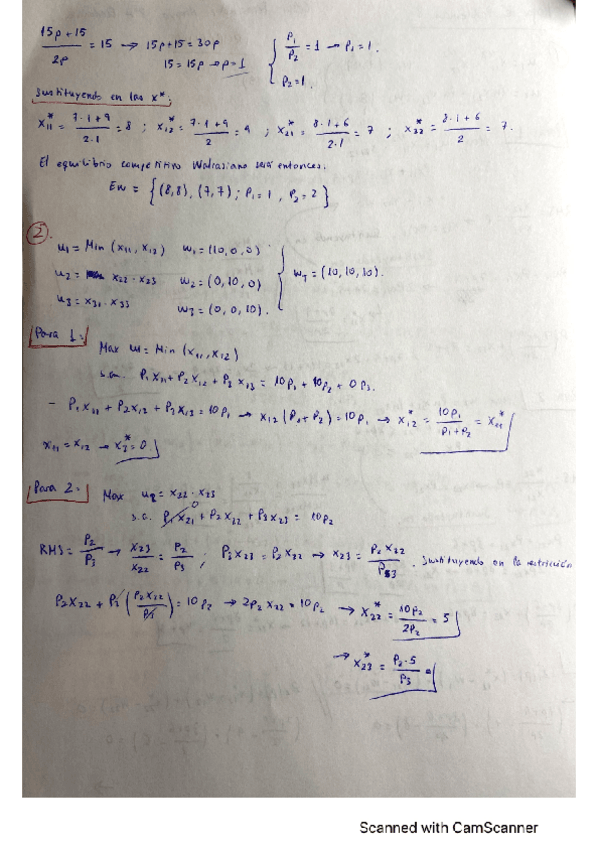 (15p + 15)/2p = 15 → 15p + 15 = 30p
15 = 15p → p = 1
{ P₁/P₂ = 1 → P₁ = 1.
P₂ = 1.
Sustituyendo en las x*:
x₁₁* = (7·1+9)/(2·1) = 8 ; x₁₂* = (7·1+9)/2 = 9 ; x₂₁* = (8·1+6)/(2·1) = 7 ; x₂₂* = (8·1+6)/2 = 7.
El equilibrio competitivo Walrasiano será entonces:
Ew = {(8,8), (7,7); P₁ = 1, P₂ = 2}
②.
u₁ = Min (x₁₁, x₁₂) w₁ = (10, 0, 0)
u₂ = x₂₂ · x₂₃ w₂ = (0, 10, 0)
u₃ = x₃₁ · x₃₃ w₃ = (0, 0, 10).
} w_T = (10, 10, 10).
Para 1:
Max u₁ = Min (x₁₁, x₁₂)
s.a. P₁x₁₁ + P₂x₁₂ + P₃x₁₃ = 10P₁ + 10P₂ + 0P₃.
- P₁x₁₁ + P₂x₁₂ + P₃x₁₃ = 10P₁ → x₁₂(P₁+P₂) = 10P₁ → x₁₂* = 10P₁/(P₁+P₂) = x₁₁*
x₁₁ = x₁₂ → x₃* = 0
Para 2:
Max u₂ = x₂₂ · x₂₃
s.a. P₁x₂₁ 0 + P₂x₂₂ + P₃x₂₃ = 10P₂
RMS = P₂/P₃ → x₂₃/x₂₂ = P₂/P₃ ; P₃x₂₃ = P₂x₂₂ → x₂₃ = P₂x₂₂/P₃ . Sustituyendo en la restricción
P₂x₂₂ + P₃(P₂x₂₂/P₃) = 10P₂ → 2P₂x₂₂ = 10P₂ → x₂₂* = 10P₂/2P₂ = 5
→ x₂₃* = P₂·5/P₃
Scanned with CamScanner